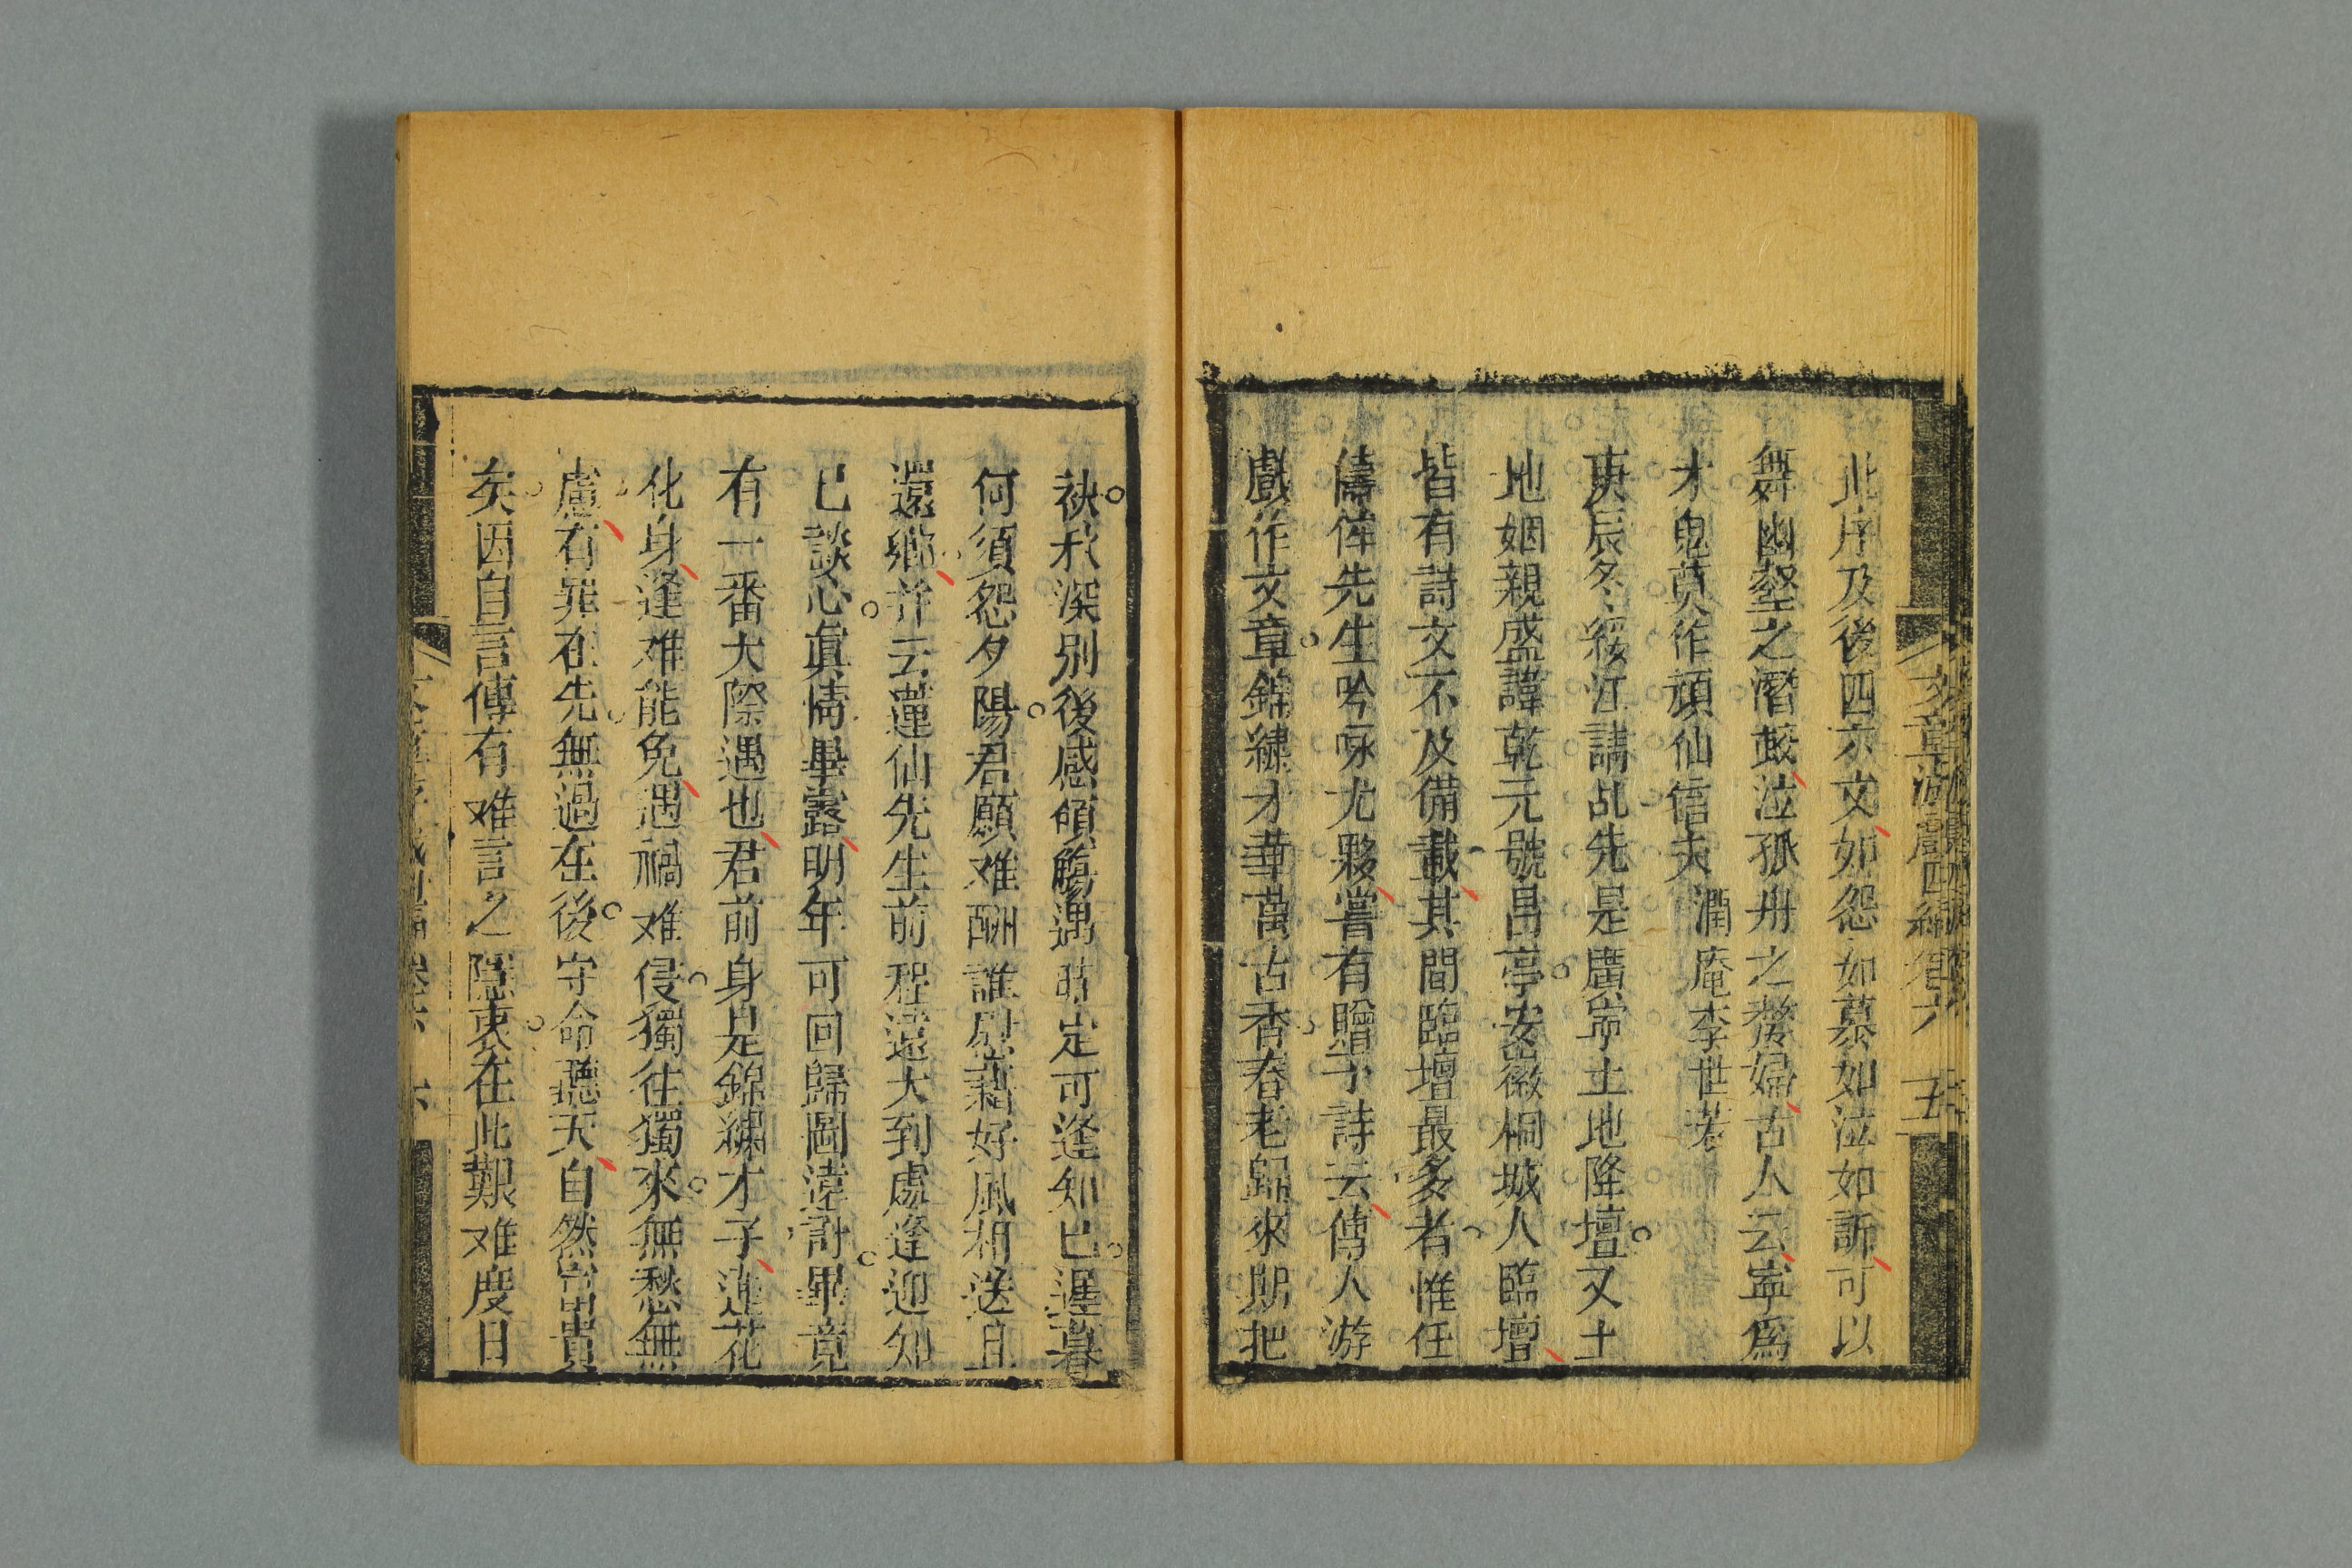 文章游戲四編 卷六 五
此序及後四六文如怨如慕如泣如訴可以
舞幽壑之潛蛟泣孤舟之嫠婦古人云寧爲
才鬼莫作頑仙信夫 潤庵李世
庚辰冬綏江請乩先是廣寧土地降壇又土
地姻親盛諱乾元號昌亭安徽桐城人臨壇
皆有詩文不及備載其間臨壇最多者惟任
儔倅先生吟咏尤夥嘗有贈予詩云傳人游
戲作文章錦繡才華萬古香春老歸來期把
袂秋深別後感傾觴遇時定可逢知己遲暮
何須怨夕陽君願难酬誰慰藉好風相送且
還鄉并云蓮仙先生前程遠大到處逢迎知
己談心眞情畢露明年可回歸圖遠計畢竟
有一番大際遇也君前身是錦繡才子蓮花
化身逢难能免遇禍难侵獨往獨來無愁無
慮有罪在先無過在後守命聽天自然富貴
矣因自言傳有难言之隱衷在此艱难度日